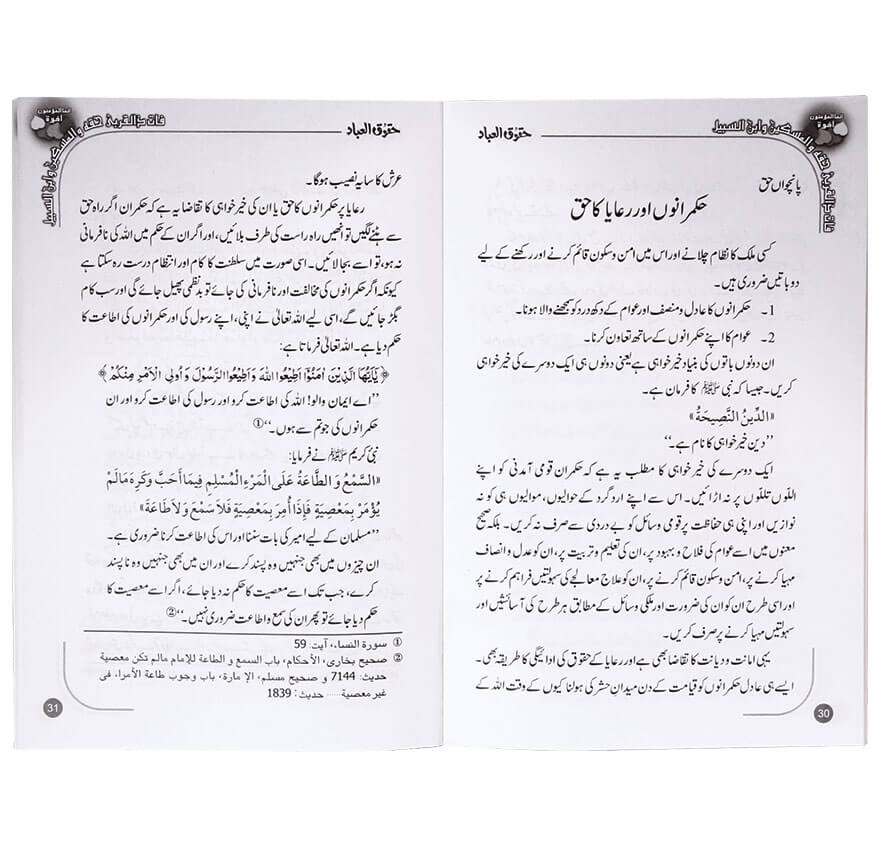 حقوق العباد
فات ذا القربى حقه والمسكين وابن السبيل
انما المؤمنون
اخوة
پانچواں حق
حکمرانوں اور رعایا کا حق
کسی ملک کا نظام چلانے اور اس میں امن و سکون قائم کرنے اور رکھنے کے لیے
دو باتیں ضروری ہیں۔
1۔ حکمرانوں کا عادل و منصف اور عوام کے دکھ درد کو سمجھنے والا ہونا۔
2۔ عوام کا اپنے حکمرانوں کے ساتھ تعاون کرنا۔
ان دونوں باتوں کی بنیاد خیر خواہی ہے یعنی دونوں ہی ایک دوسرے کی خیر خواہی
کریں۔ جیسا کہ نبی ﷺ کا فرمان ہے۔
«الدِّينُ النَّصِيحَةُ»
’’دین خیر خواہی کا نام ہے۔‘‘
ایک دوسرے کی خیر خواہی کا مطلب یہ ہے کہ حکمران قومی آمدنی کو اپنے
اللّوں تللّوں پر نہ اڑائیں۔ اس سے اپنے ارد گرد کے حوالیوں، موالیوں ہی کو نہ
نوازیں اور اپنی ہی حفاظت پر قومی وسائل کو بے دردی سے صرف نہ کریں۔ بلکہ صحیح
معنوں میں اسے عوام کی فلاح و بہبود پر، ان کی تعلیم و تربیت پر، ان کو عدل و انصاف
مہیا کرنے پر، امن و سکون قائم کرنے پر، ان کو علاج معالجے کی سہولتیں فراہم کرنے پر
اور اسی طرح ان کو ان کی ضرورت اور ملکی وسائل کے مطابق ہر طرح کی آسائشیں اور
سہولتیں مہیا کرنے پر صرف کریں۔
یہی امانت و دیانت کا تقاضا بھی ہے اور رعایا کے حقوق کی ادائیگی کا طریقہ بھی۔
ایسے ہی عادل حکمرانوں کو قیامت کے دن میدان حشر کی ہولنا کیوں کے وقت اللہ کے
30
حقوق العباد
فات ذا القربى حقه والمسكين وابن السبيل
انما المؤمنون
اخوة
عرش کا سایہ نصیب ہوگا۔
رعایا پر حکمرانوں کا حق یا ان کی خیر خواہی کا تقاضا یہ ہے کہ حکمران اگر راہ حق
سے ہٹنے لگیں تو انھیں راہ راست کی طرف بلائیں، اور اگر ان کے حکم میں اللہ کی نافرمانی
نہ ہو، تو اسے بجا لائیں۔ اسی صورت میں سلطنت کا کام اور انتظام درست رہ سکتا ہے
کیونکہ اگر حکمرانوں کی مخالفت اور نافرمانی کی جائے تو بدنظمی پھیل جائے گی اور سب کام
بگڑ جائیں گے، اسی لیے اللہ تعالیٰ نے اپنی، اپنے رسول کی اور حکمرانوں کی اطاعت کا
حکم دیا ہے۔ اللہ تعالیٰ فرماتا ہے:
﴿يٰٓاَيُّهَا الَّذِيْنَ اٰمَنُوْٓا اَطِيْعُوا اللّٰهَ وَاَطِيْعُوا الرَّسُوْلَ وَاُولِي الْاَمْرِ مِنْكُمْ﴾
’’اے ایمان والو! اللہ کی اطاعت کرو اور رسول کی اطاعت کرو اور ان
حکمرانوں کی جو تم سے ہوں۔‘‘①
نبی کریم ﷺ نے فرمایا:
«السَّمْعُ وَ الطَّاعَةُ عَلَى الْمَرْءِ الْمُسْلِمِ فِيمَا أَحَبَّ وَكَرِهَ مَا لَمْ
يُؤْمَرْ بِمَعْصِيَةٍ فَإِذَا أُمِرَ بِمَعْصِيَةٍ فَلَا سَمْعَ وَلَا طَاعَةَ»
’’مسلمان کے لیے امیر کی بات سننا اور اس کی اطاعت کرنا ضروری ہے۔
ان چیزوں میں بھی جنہیں وہ پسند کرے اور ان میں بھی جنہیں وہ ناپسند
کرے، جب تک اسے معصیت کا حکم نہ دیا جائے، اگر اسے معصیت کا
حکم دیا جائے تو پھر ان کی سمع و اطاعت ضروری نہیں۔‘‘②
① سورة النساء، آیت: 59
② صحیح بخاری، الأحکام، باب السمع و الطاعة للإمام مالم تکن معصیة
حدیث: 7144 و صحیح مسلم، الإمارة، باب وجوب طاعة الأمراء فی
غیر معصیة ..... حدیث: 1839
31